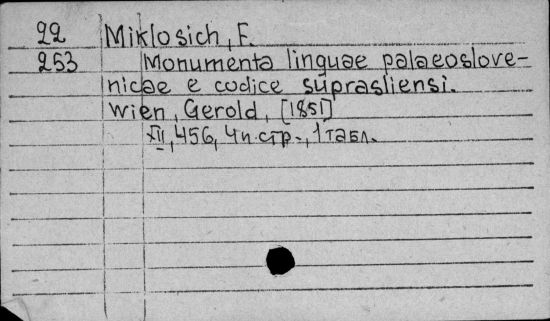 22 Miklosich, F.
253 Monumenta linguae palaeoslove-
nicae e codice suprasliensi.
Wien, Gerold, [1851]
XII, 456, 4 н. стр., 1 табл.